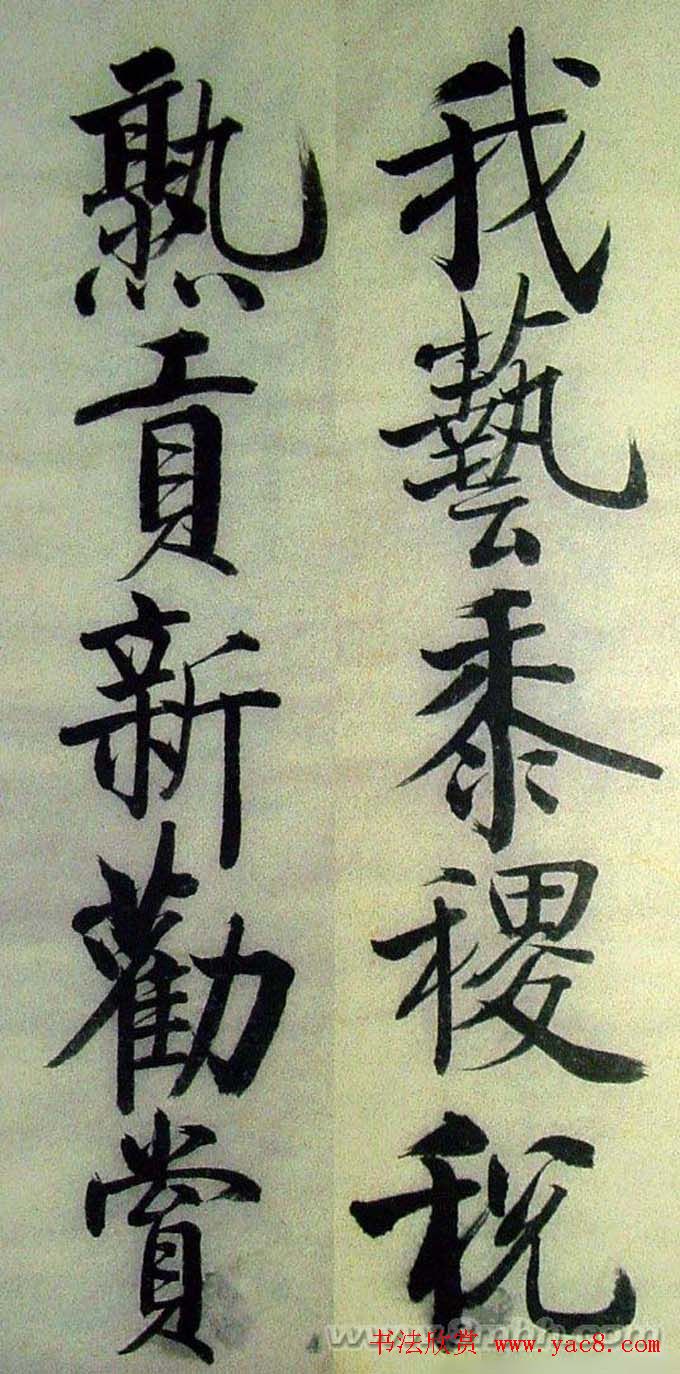 我藝黍稷稅
熟貢新勸賞
书法欣赏 www.yac8.com